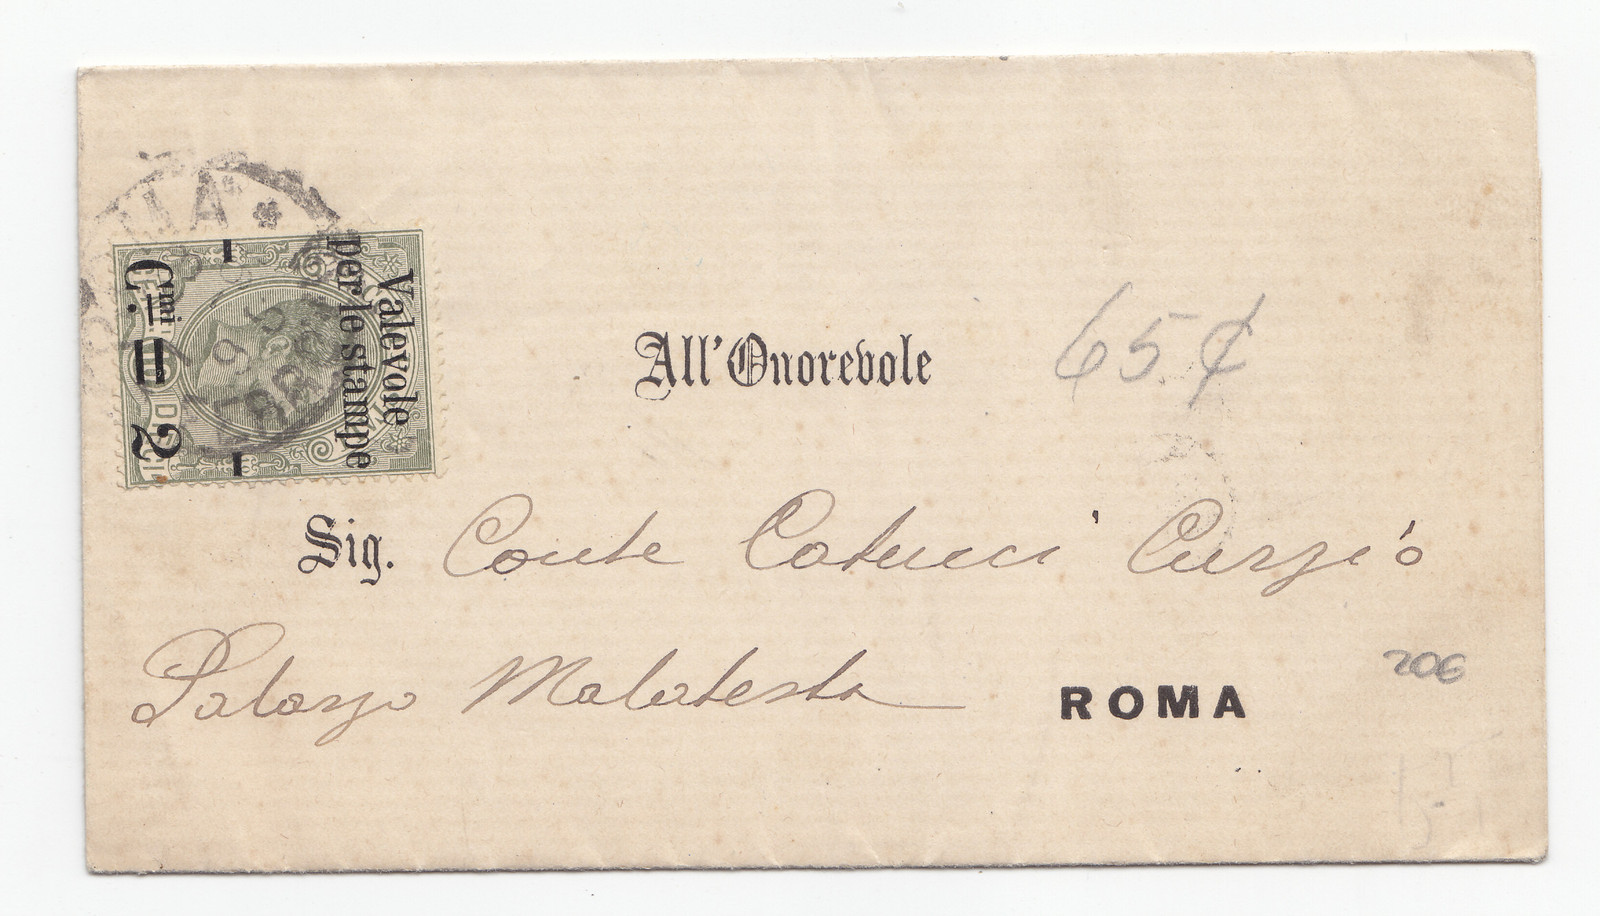 Valevole
per le stampe
Cmi 2
All'Onorevole
65 ¢
Sig. Conte Catucci Curzio
Palazzo Malatesta
ROMA
206